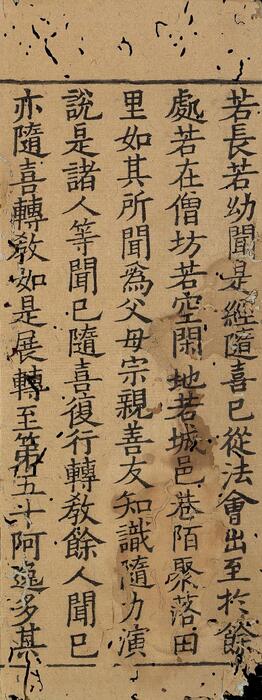 若長若幼聞是經隨喜已從法會出至於餘
處若在僧坊若空閑地若城邑巷陌聚落田
里如其所聞為父母宗親善友知識隨力演
說是諸人等聞已隨喜復行轉教餘人聞已
亦隨喜轉教如是展轉至第五十阿逸多其